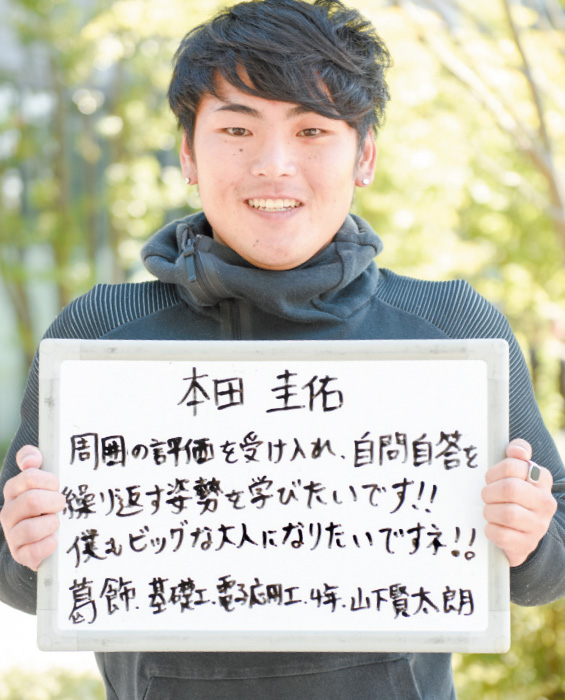 本田 圭佑
周囲の評価を受け入れ、自問自答を
繰り返す姿勢を学びたいです!!
僕もビッグな大人になりたいですネ!!
葛飾.基礎工.電子応用工.4年.山下賢太朗